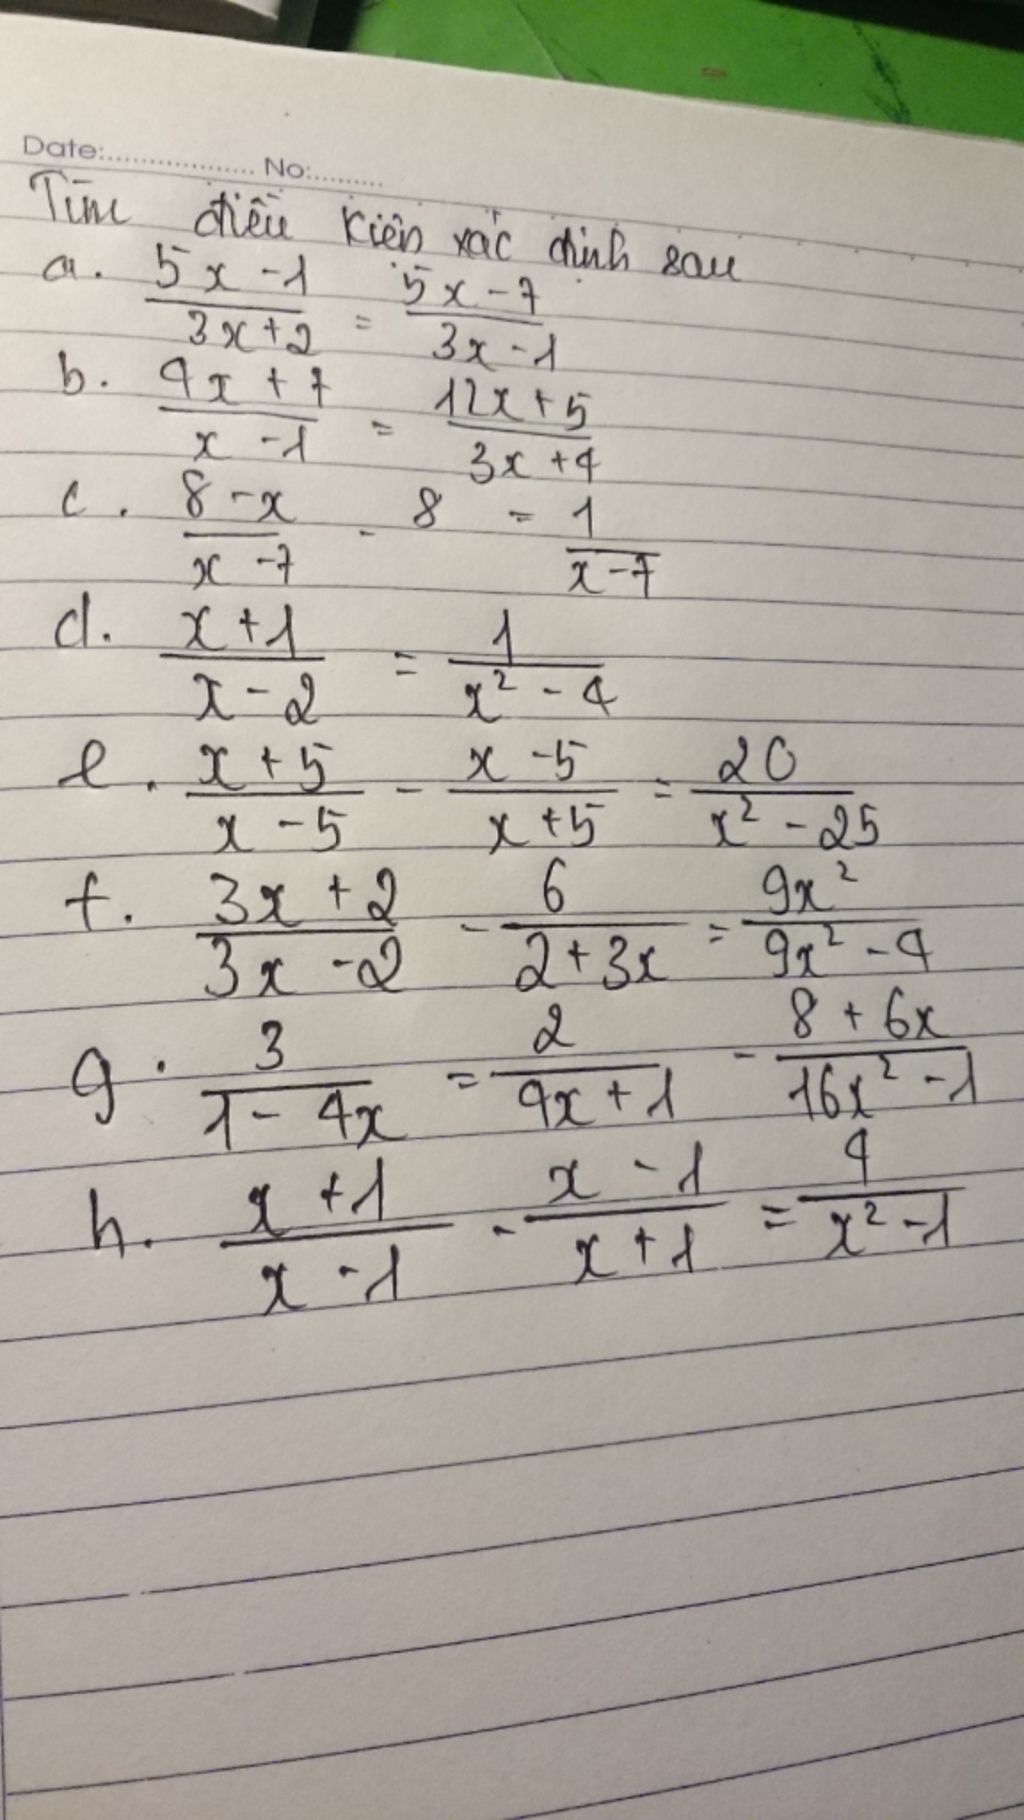 Date:.................. No:.........
Tìm điều kiện xác định sau
a. (5x - 1)/(3x + 2) = (5x - 7)/(3x - 1)
b. (4x + 7)/(x - 1) = (12x + 5)/(3x + 4)
c. (8 - x)/(x - 7) - 8 = 1/(x - 7)
d. (x + 1)/(x - 2) = 1/(x² - 4)
e. (x + 5)/(x - 5) - (x - 5)/(x + 5) = 20/(x² - 25)
f. (3x + 2)/(3x - 2) - 6/(2 + 3x) = 9x²/(9x² - 4)
g. 3/(1 - 4x) = 2/(4x + 1) - (8 + 6x)/(16x² - 1)
h. (x + 1)/(x - 1) - (x - 1)/(x + 1) = 4/(x² - 1)